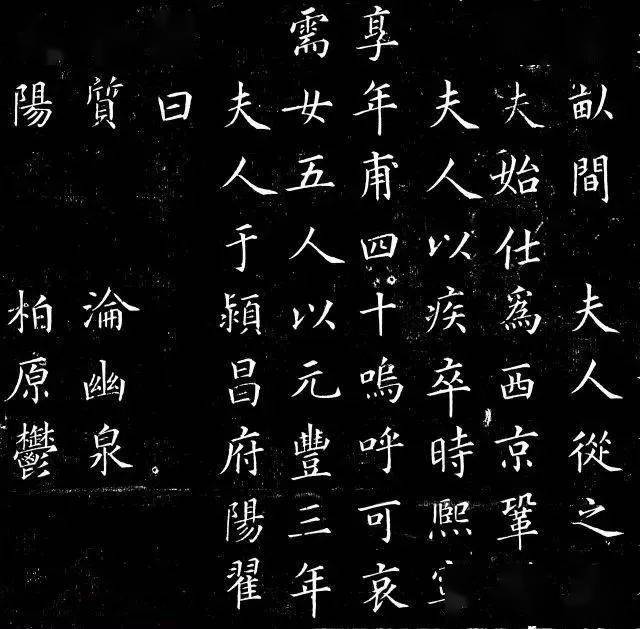 畝間　夫人從之
夫始仕為西京鞏
夫人以疾卒時熙寧
享年甫四十嗚呼可哀
需女五人以元豐三年
夫人于潁昌府陽翟
曰
質　淪幽泉
陽　柏原鬱